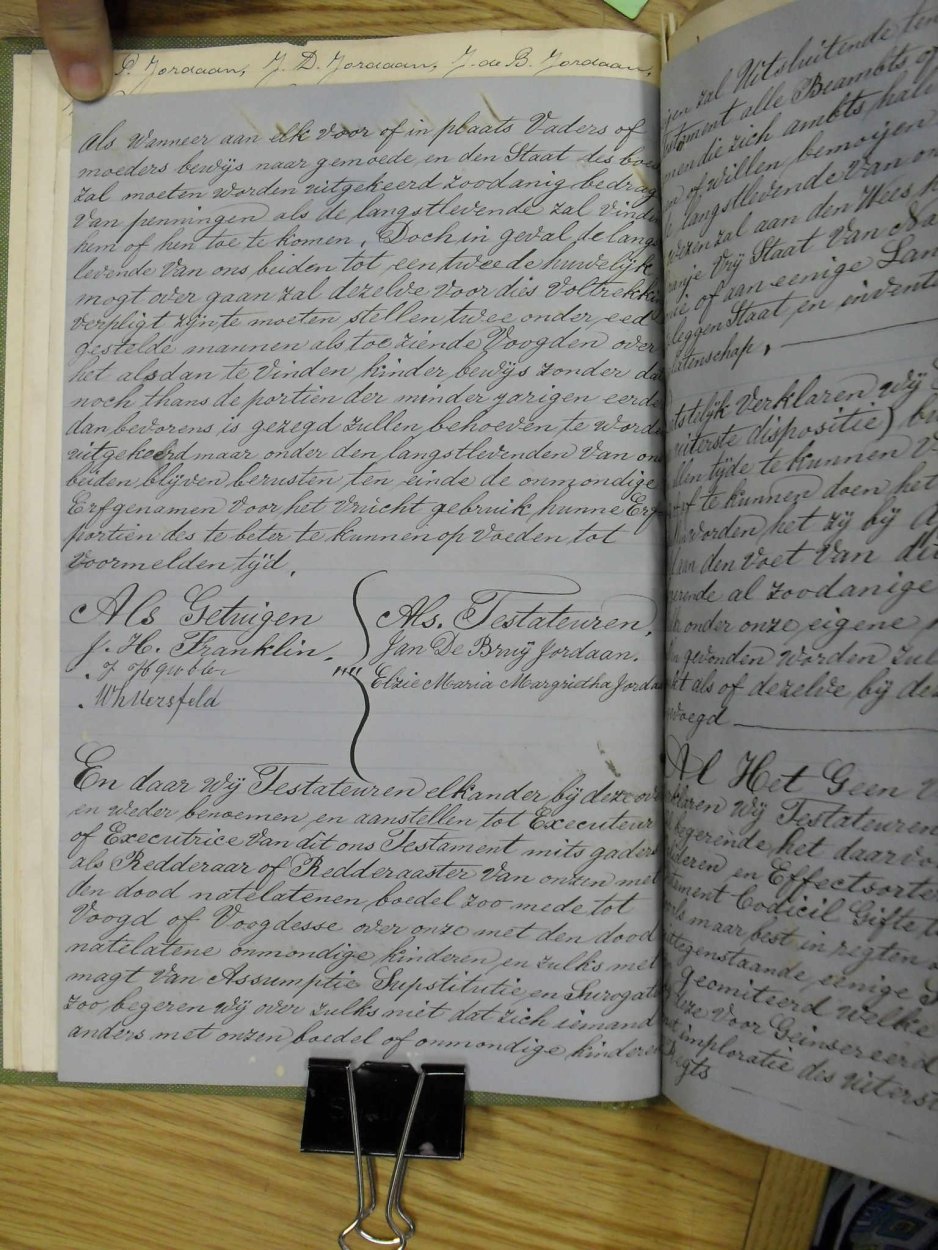 P. Jordaan, J. D. Jordaan, J. de B. Jordaan,
Als Wanneer aan elk voor of in plaats Vaders of
moeders bewijs naar gemoede en den Staat des boe
zal moeten worden uitgekeerd zoodanig bedrag
Van penningen als de langstlevende zal vinde
hem of hen toe te komen. Doch in geval de langs
levende Van ons beiden tot een tweede huwelijk
mogt over gaan zal dezelve voor dies voltrekki
verpligt zijn te moeten stellen twee onder eed
gestelde mannen als toeziende Voogden over
het alsdan te vinden kinder bewijs zonder da
noch thans de portien der minder jarigen eerde
dan bevorens is gezegd zullen behoeven te worde
uitgekeerd maar onder den langstlevenden Van on
beiden blijven berusten ten einde de onmondige
Erfgenamen voor het vrucht gebruik hunne Erf
portien des te beter te kunnen op voeden tot
voormelden tijd.
Als Getuigen
J. H. Franklin.
W h Uersfeld
Als. Testateuren,
Jan De Bruÿ Jordaan.
"" Elzie Maria Margridtha Jorda
En daar Wij Testateuren elkander bij deze over
en weder benoemen en aanstellen tot Executeur
of Executrice van dit ons Testament mits gader
als Redderaar of Redderaaster van onzen met
den dood natelatenen boedel zoo mede tot
Voogd of Voogdesse over onze met den dood
natelatene onmondige kinderen en zulks met
magt van Assumptie Supstitutie en Surogati
zoo begeren wij over zulks niet dat zich iemand
anders met onzen boedel of onmondige kindere
gen zal Uitsluitende ten
tament alle Beambts of
mendie zich ambts hal
of willen bemoijen
langstlevende van on
wezen zal aan den Wees
ranje Vrij Staat Van Na
of aan eenige Lan
leggen Staat en invent
latenschap,
tstelijk Verklaren wij
uiterste dispositie) be
llen tijde te kunnen
of te kunnen doen het
worden het zij bij
aan den voet Van di
erende al zoodanige
onder onze eigene
gevonden worden zul
t als of dezelve bij de
voegd
Al Het Geen
klaren wij Testateuren
begerende het daarvo
deren en Effect sorte
tament Codicil Gifte
als maar best in regten
ntegenstaande eenige
geomiteerd welke
deze voor Geinsereerd
imploratie des uiterst
Regts